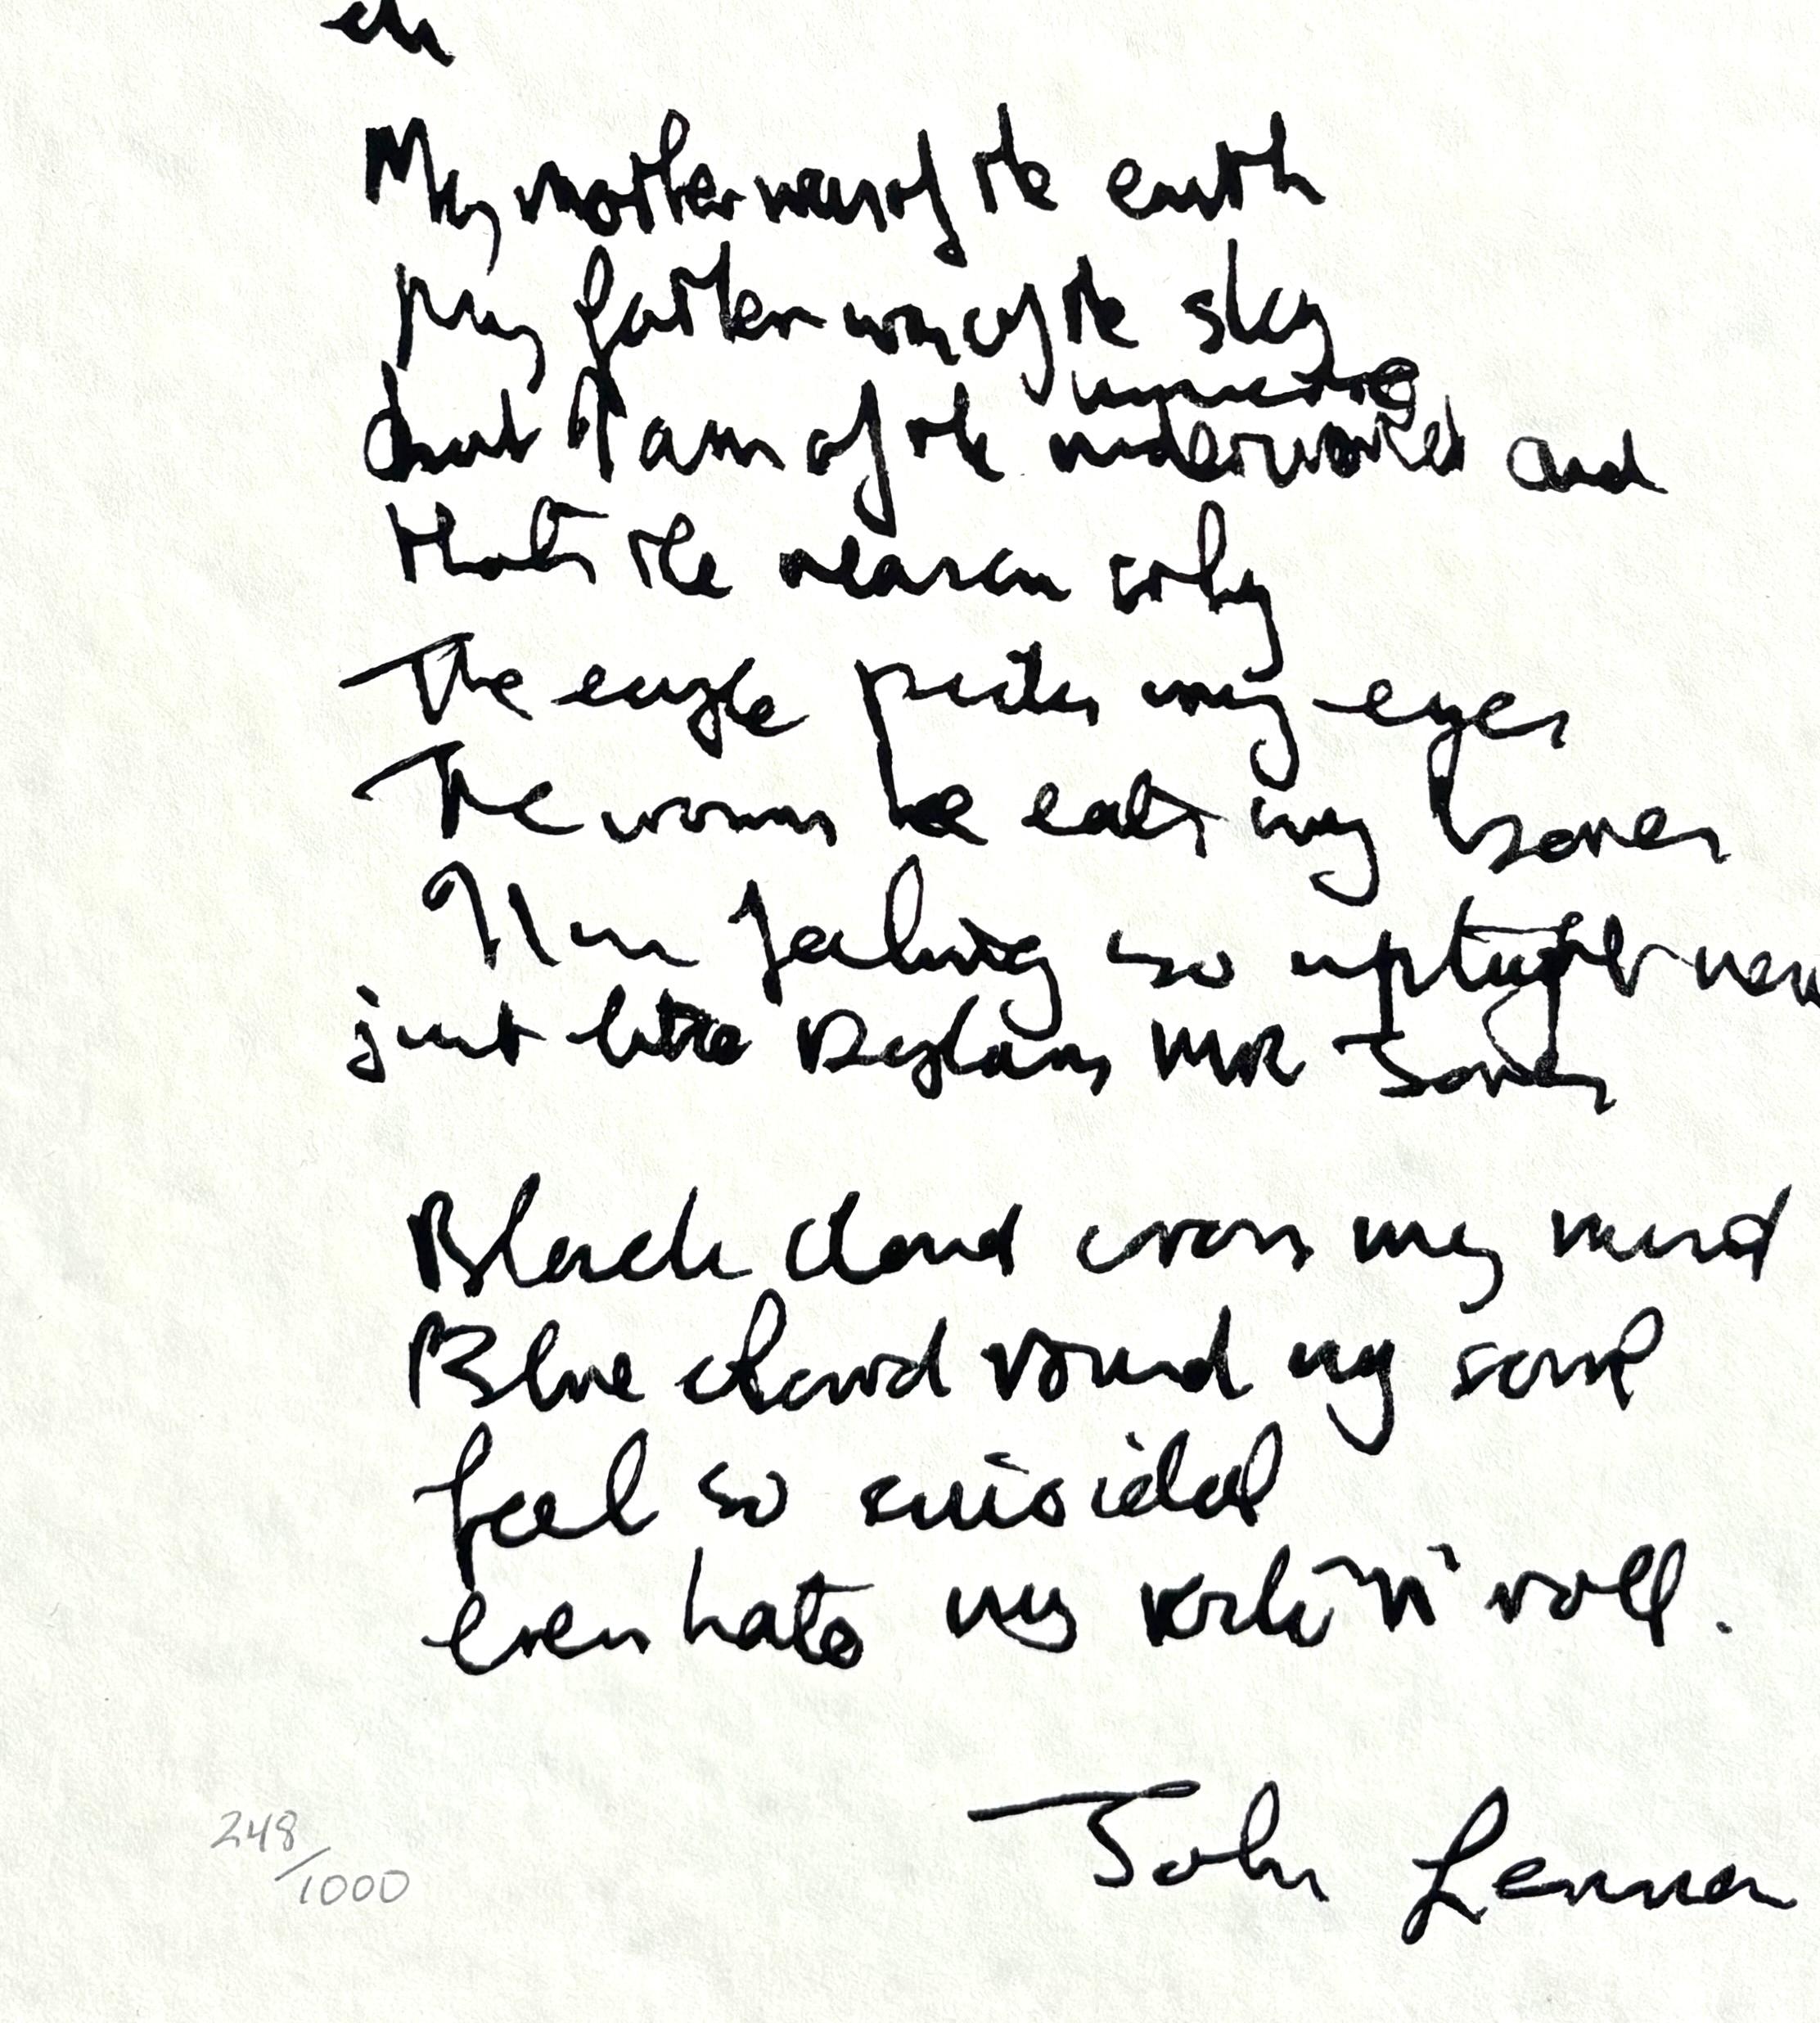 My mother was of the earth
my father was of the sky
universe
but I am of the underworld and
thats the reason why
The eagle picks my eyes
The worm he eats my bones
I'm feeling so uptight
just like Dylans MR Jones
Black cloud cross my mind
Blue cloud round my soul
feel so suicidal
even hate my rock 'n' roll.
John Lennon
248/1000